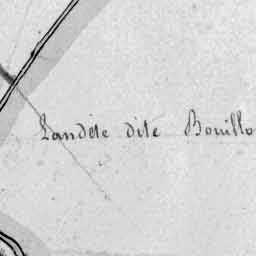 Landéte dite Bouillo